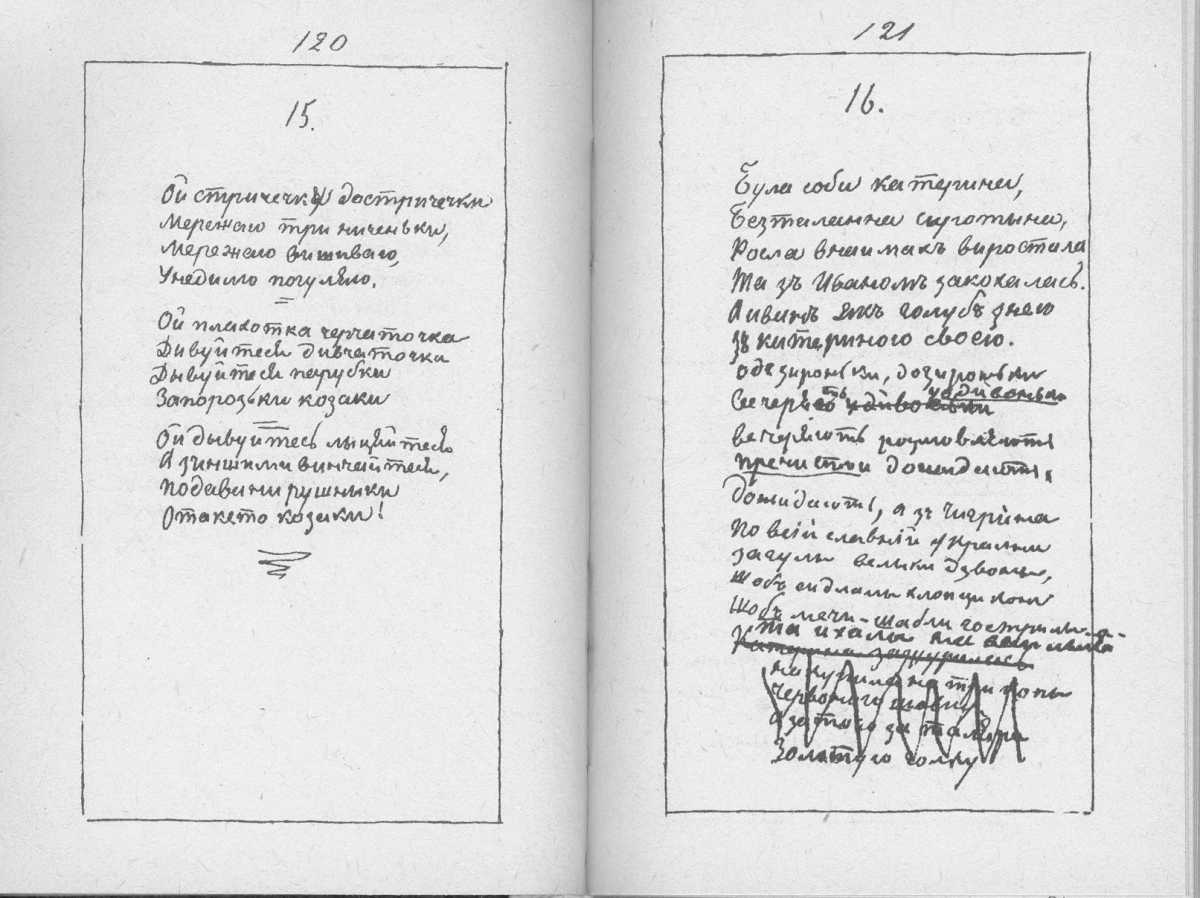 120
15.
Ой стричечка достричечки
Мережаю три ниченьки,
Мережаю вишиваю,
Унедилю погуляю.
Ой плахотка черчаточка
Дивуйтеся дивчаточка
Дывуйтеся парубки
Запорозьки козаки
Ой дывуйтесь лыцяйтеся
А зиншими винчайтеся,
Подавани рушныки
Отакето козаки!
121
16.
Була соби катерина,
Безталанна сыротына,
Росла вона макъ виростала
Та зъ Иваномъ закохалась.
А ивинъ якъ голубъ знею
Зъ катериною своею.
Одъ зироньки, дозироньки
Сечеря
вечеряють розмовляють
пречистои дожидають.
Дожидають, а зъ Чигрина
По всій славній украини
загулы велики дзвоны,
Щобъ сидлалы хлопци кони
Щобъ мечи-шабли гострилы-а-
та ихалы на
Катерина зажурилась
на три копы
Червоного
а за тую за таляра
Золотую голку